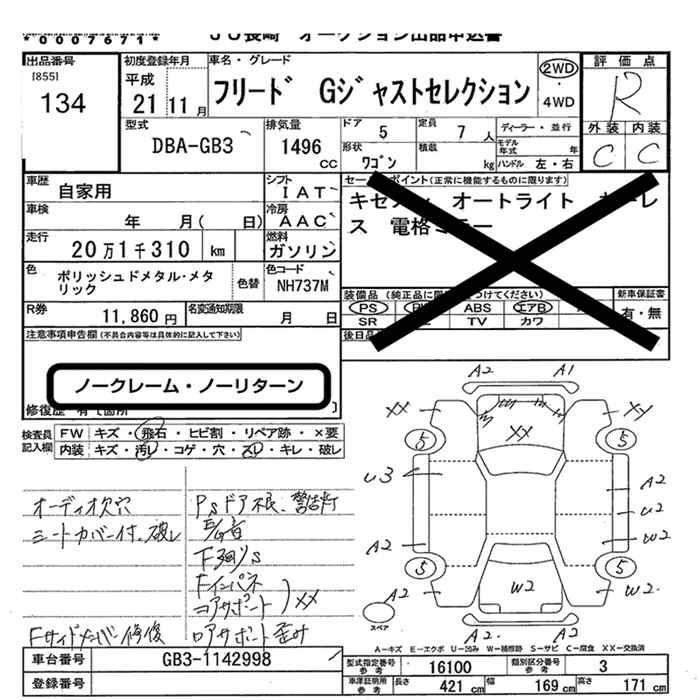 *0007671*
JU長崎 オークション出品申込書
出品番号
[855]
134
初度登録年月
平成
21 11 月
車名・グレード
フリード Gジャストセレクション
2WD
4WD
評価点
R
外装 内装
C C
型式
DBA-GB3
排気量
1496
CC
ドア 5
定員 7 人
ディーラー・並行
形状
ワゴン
積載 kg
モデル年式 年
ハンドル 左・右
車歴
自家用
シフト
IAT
セールスポイント(正常に機能するものに限ります)
オートライト
ス 電格ミラー
車検
年 月( 日)
冷房
AAC
走行
20万1千310 km
燃料
ガソリン
色
ポリッシュドメタル・メタリック
色替
色コード
NH737M
装備品
PS ABS エアB
SR TV カワ
新車保証書
有・無
R券
11,860 円
名変通知期限
月 日
注意事項申告欄(不具合内容等は具体的に記入して下さい)
後日品
ノークレーム・ノーリターン
修復歴 有 箇所
検査員記入欄
FW キズ・飛石・ヒビ割・リペア跡・×要
内装 キズ・汚レ・コゲ・穴・スレ・キレ・破レ
オーディオ欠穴
シートカバー付、破レ
Fサイドメンバー修復
PSドア不良、警告灯
異音
Fインパネ
コアサポート XX
ロアサポート歪み
A2 A1
XX XX XY
5 5
U3
A2
U2
W2
A2
5 5
A2 W2 W2
A2 A2
スペア
A-キズ E-エクボ U-凹み W-補修跡 S-サビ C-腐食 XX-交換済
車台番号
GB3-1142998
登録番号
型式指定番号参考
16100
類別区分番号参考
3
車庫証明用参考
長さ 421 cm
幅 169 cm
高さ 171 cm